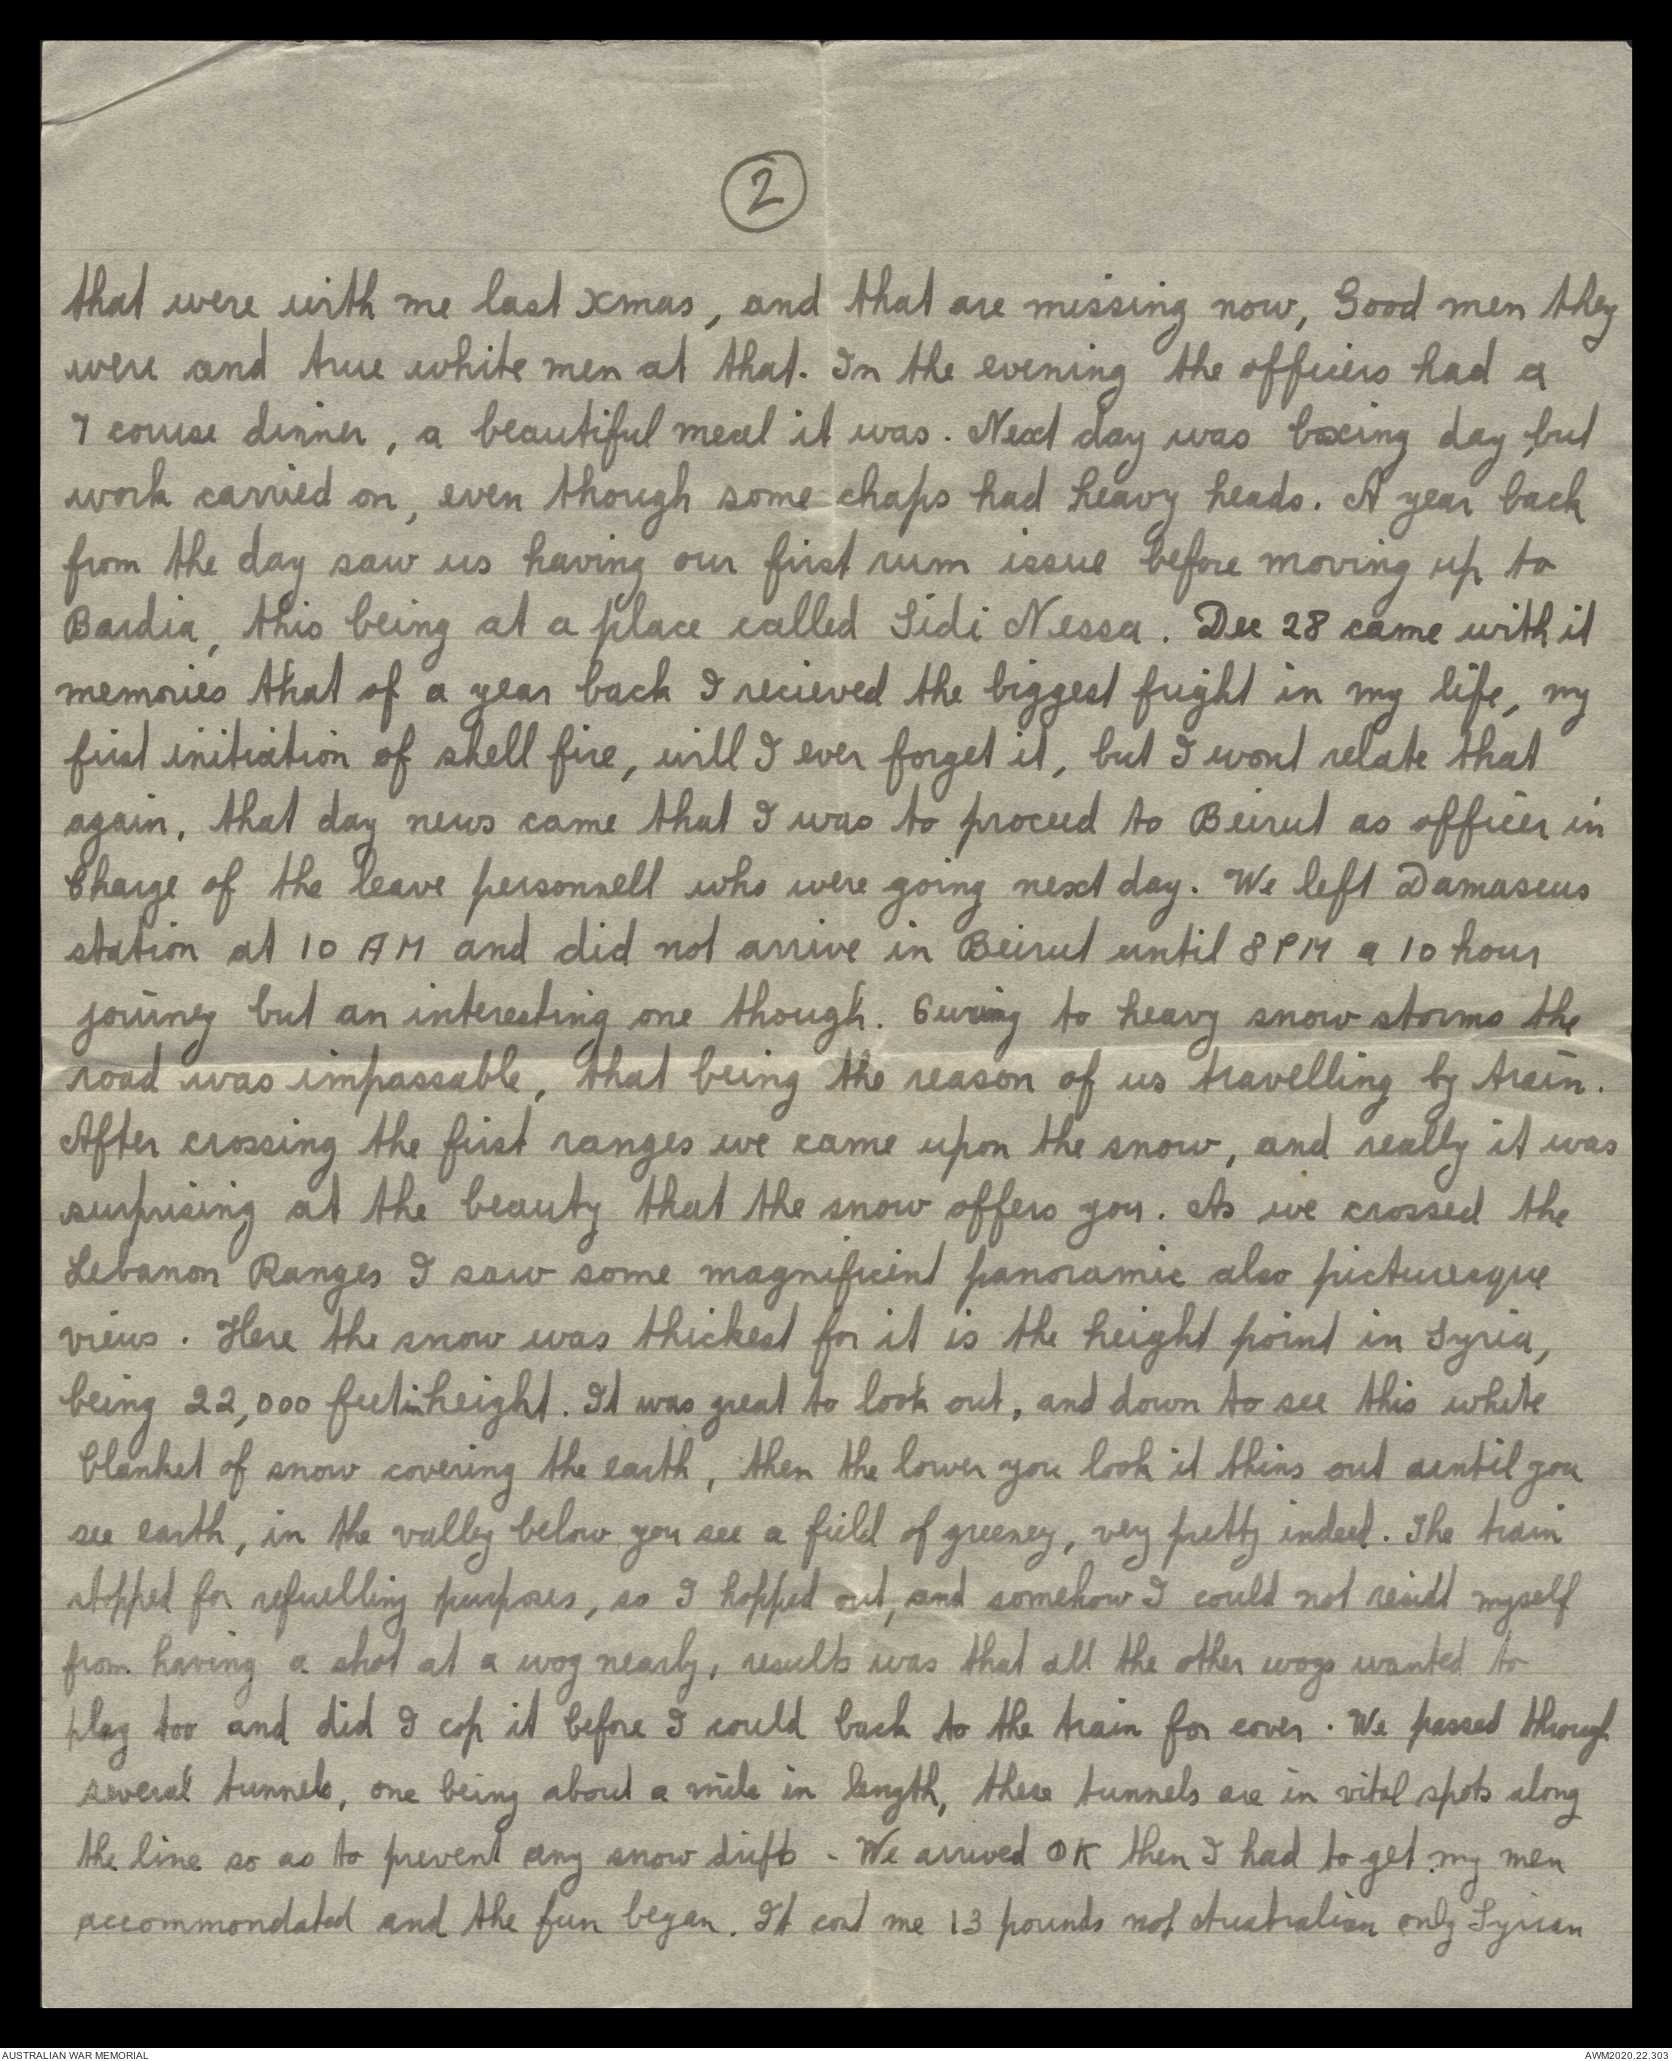 2
that were with me last Xmas, and that are missing now, Good men they
were and true white men at that. In the evening the officers had a
7 course dinner, a beautiful meal it was. Next day was boxing day, but
work carried on, even though some chaps had heavy heads. A year back
from the day saw us having our first rum issue before moving up to
Bardia, this being at a place called Sidi Nessa. Dec 28 came with it
memories that of a year back I recieved the biggest fright in my life, my
first initiation of shell fire, will I ever forget it, but I wont relate that
again, that day news came that I was to proceed to Beirut as officer in
Charge of the leave personnell who were going next day. We left Damascus
station at 10 AM and did not arrive in Beirut until 8PM a 10 hour
journey but an interesting one though. to heavy snow storms the
road was impassable, that being the reason of us travelling by train.
After crossing the first ranges we came upon the snow, and really it was
surprising at the beauty that the snow offers you. As we crossed the
Lebanon Ranges I saw some magnificint panoramic also picturesque
views. Here the snow was thickest for it is the height point in Syria,
being 22,000 feet in height. It was great to look out, and down to see this white
blanket of snow covering the earth, then the lower you look it thins out auntil you
see earth, in the valley below you see a field of greeney, very pretty indeed. The train
stopped for refuelling purposes, so I hopped out, and somehow I could not resist myself
from having a shot at a wog nearby, results was that all the other wogs wanted to
play too and did I cop it before I could back to the train for cover. We passed through
several tunnels, one being about a mile in length, these tunnels are in vital spots along
the line so as to prevent any snow drifts - We arrived OK then I had to get my men
accommondated and the fun began. It cost me 13 pounds not Australian only Syrian
AUSTRALIAN WAR MEMORIAL
AWM2020.22.303